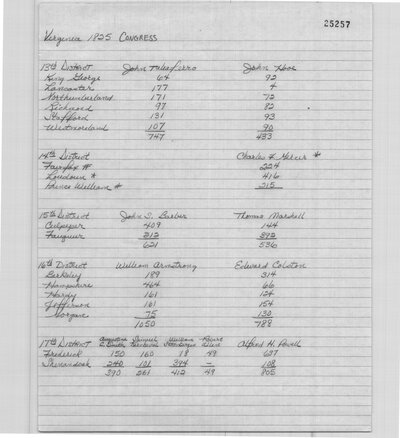 25257
Virginia 1825 CONGRESS
13th DISTRICT John Taliaferro John Hooe
King George 64 92
Lancaster 177 4
Northumberland 171 72
Richmond 97 82
Stafford 131 93
Westmoreland 107 90
747 433
14th District Charles F. Mercer *
Fairfax # 224
Loudoun * 416
Prince William # 215
15th District John S. Barbour Thomas Marshall
Culpeper 409 144
Fauquier 212 392
621 536
16th District William Armstrong Edward Colston
Berkeley 189 314
Hampshire 464 66
Hardy 161 124
Jefferson 161 154
Morgan 75 130
1050 788
17th DISTRICT Augustine Samuel William Robert Alfred H. Powell
Smith Allen
Frederick 150 160 18 49 697
Shenandoah 240 101 394 — 108
390 261 412 49 805